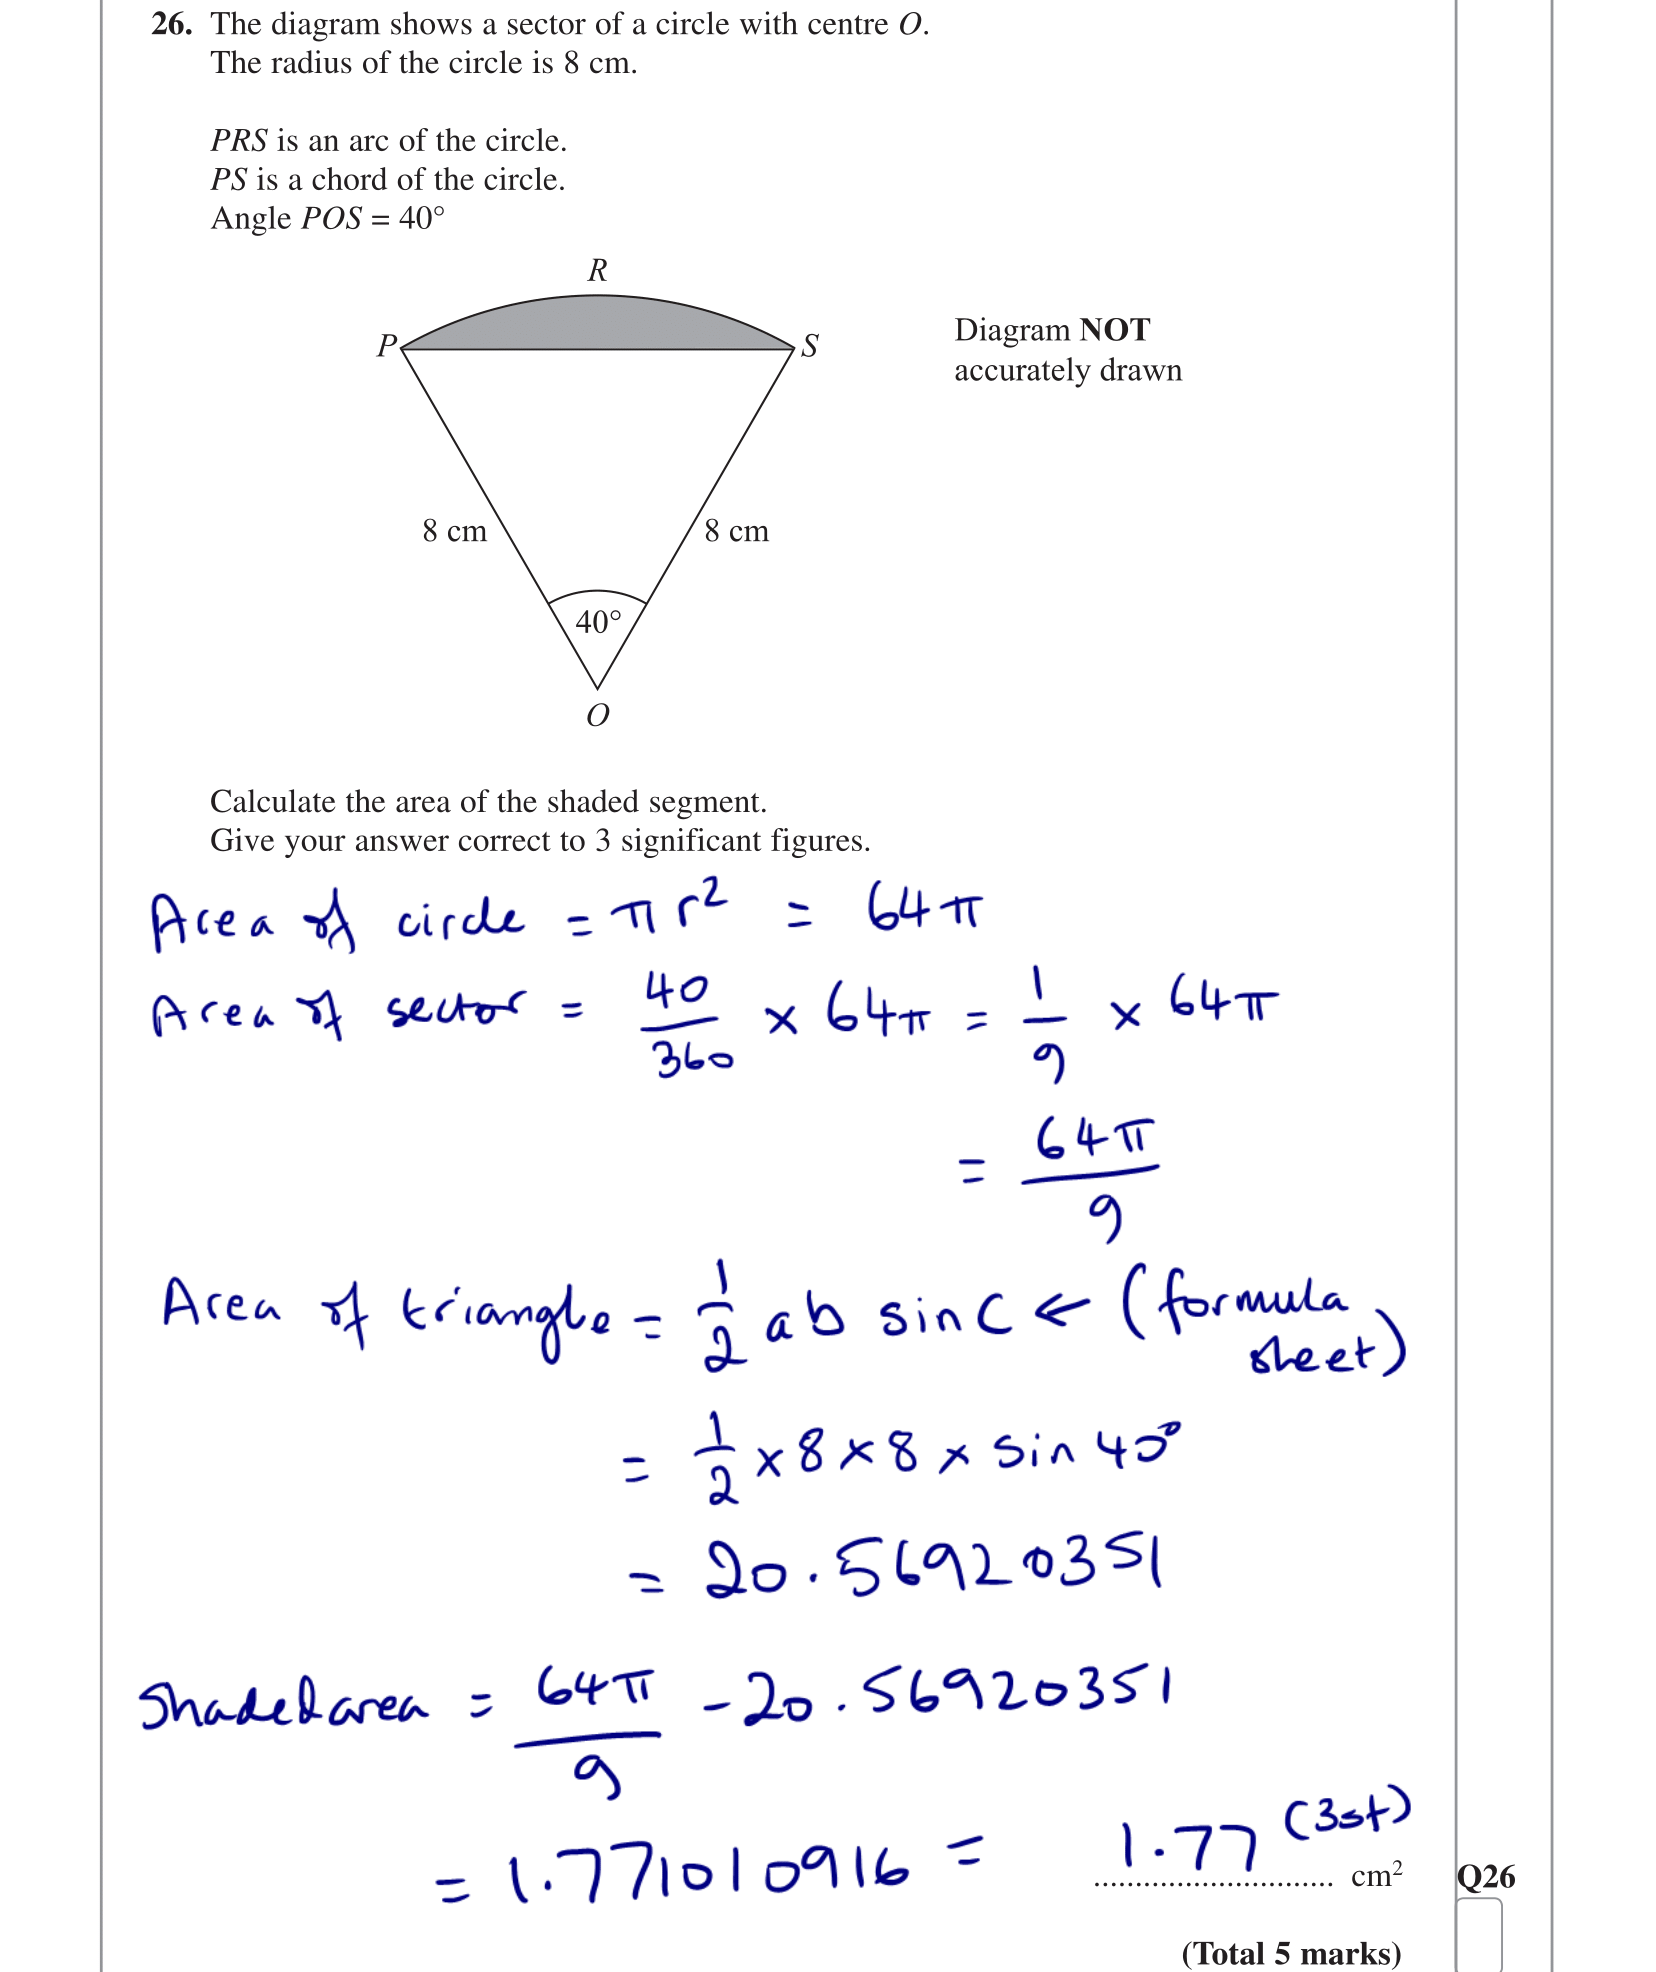 26. The diagram shows a sector of a circle with centre O.
The radius of the circle is 8 cm.
PRS is an arc of the circle.
PS is a chord of the circle.
Angle POS = 40°
R
P
S
Diagram NOT
accurately drawn
8 cm
8 cm
40°
O
Calculate the area of the shaded segment.
Give your answer correct to 3 significant figures.
Area of circle = πr² = 64π
Area of sector = 40/360 × 64π = 1/9 × 64π
= 64π/9
Area of triangle = 1/2 ab sin C ← (formula
sheet)
= 1/2 × 8 × 8 × sin 40°
= 20.56920351
Shaded area = 64π/9 - 20.56920351
= 1.771010916 = 1.77 (3sf)
cm²
Q26
(Total 5 marks)